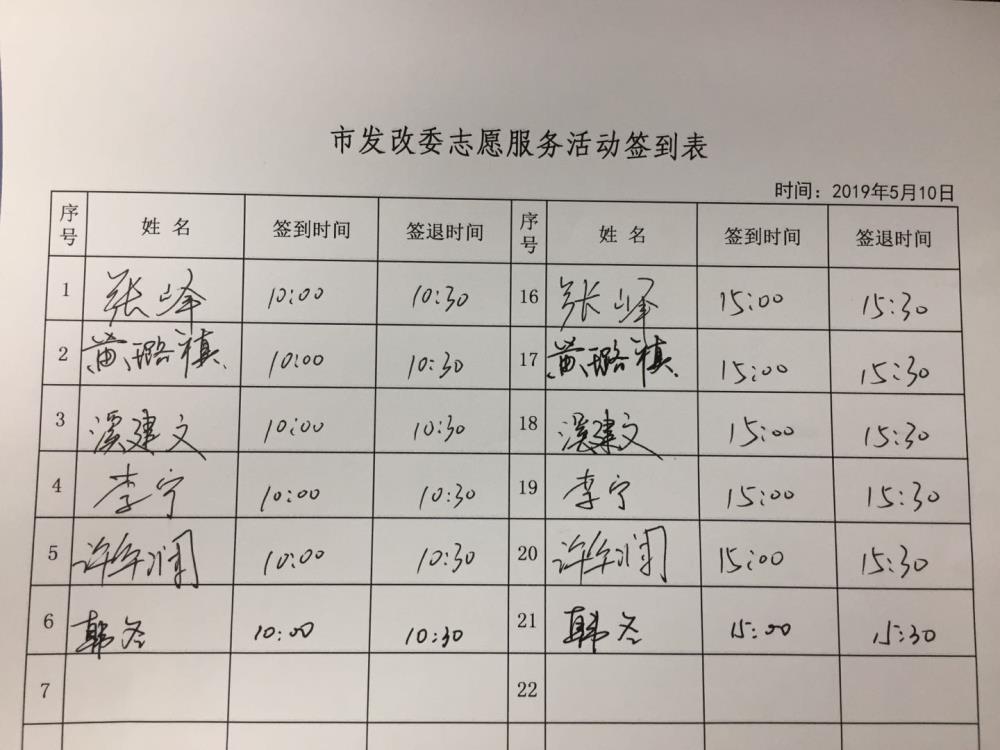 市发改委志愿服务活动签到表
时间：2019年5月10日
序号 姓名 签到时间 签退时间 序号 姓名 签到时间 签退时间
1 张峰 10:00 10:30 16 张峰 15:00 15:30
2 黄璐禛 10:00 10:30 17 黄璐禛 15:00 15:30
3 溪建文 10:00 10:30 18 溪建文 15:00 15:30
4 李宁 10:00 10:30 19 李宁 15:00 15:30
5 许年润 10:00 10:30 20 许年润 15:00 15:30
6 韩冬 10:00 10:30 21 韩冬 15:00 15:30
7 22